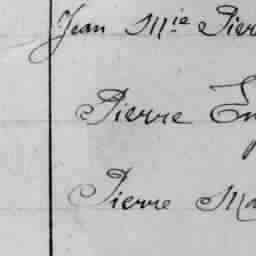 Jean Mie Pier
Pierre Eu
Pierre Ma